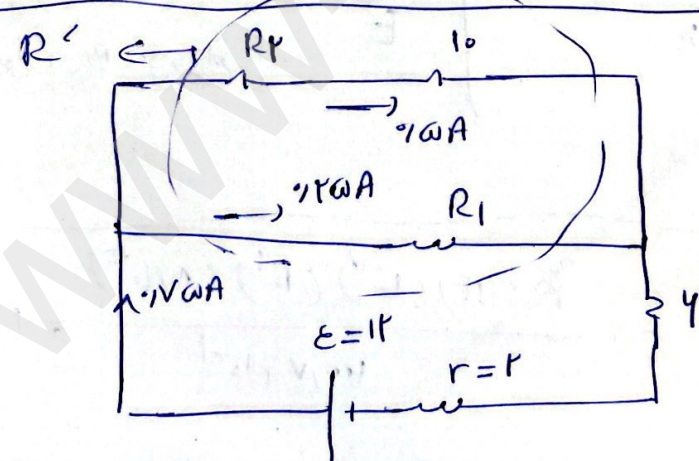 R' R۲ ۱۰
۰/۵A
۰/۲۵A R۱
۰/۷۵A ۶
ε=۱۲ r=۲
WWW